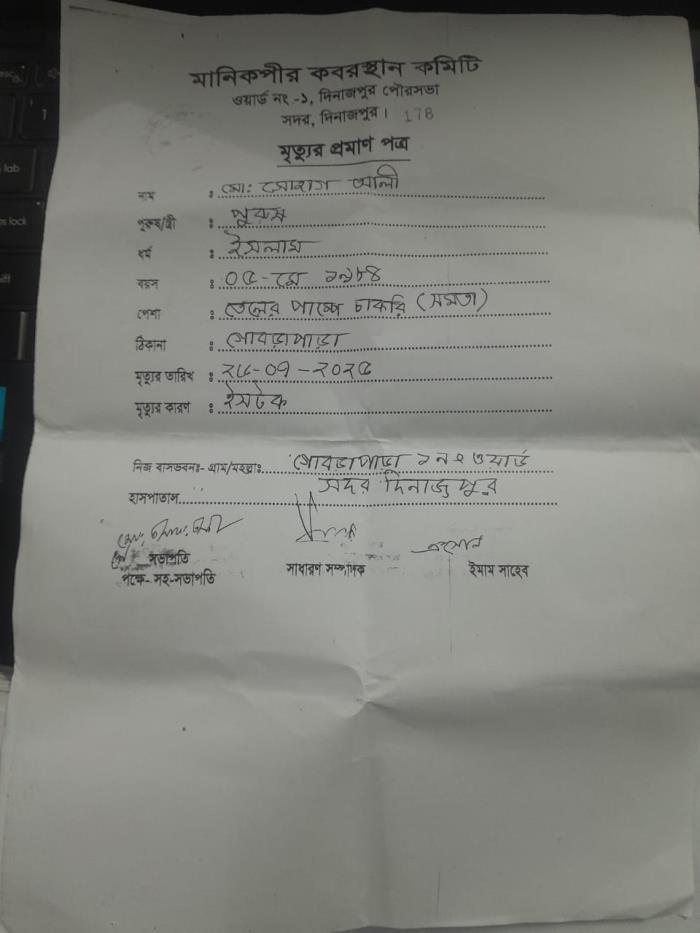 মানিকপীর কবরস্থান কমিটি
ওয়ার্ড নং -১, দিনাজপুর পৌরসভা
সদর, দিনাজপুর। 178
মৃত্যুর প্রমাণ পত্র
নাম : মো: সোহাগ আলী
পুরুষ/স্ত্রী : পুরুষ
ধর্ম : ইসলাম
বয়স : ০৫-মে ১৯৮৪
পেশা : তেলের পাম্পে চাকরি (মমতা)
ঠিকানা : গোবড়াপাড়া
মৃত্যুর তারিখ : ২৫-০৭-২০২৫
মৃত্যুর কারণ : ইসটক
নিজ বাসভবনঃ- গ্রাম/মহল্লাঃ গোবড়াপাড়া ১নং ওয়ার্ড
সদর দিনাজপুর
হাসপাতাল
সভাপতি
পক্ষে- সহ-সভাপতি সাধারণ সম্পাদক ইমাম সাহেব